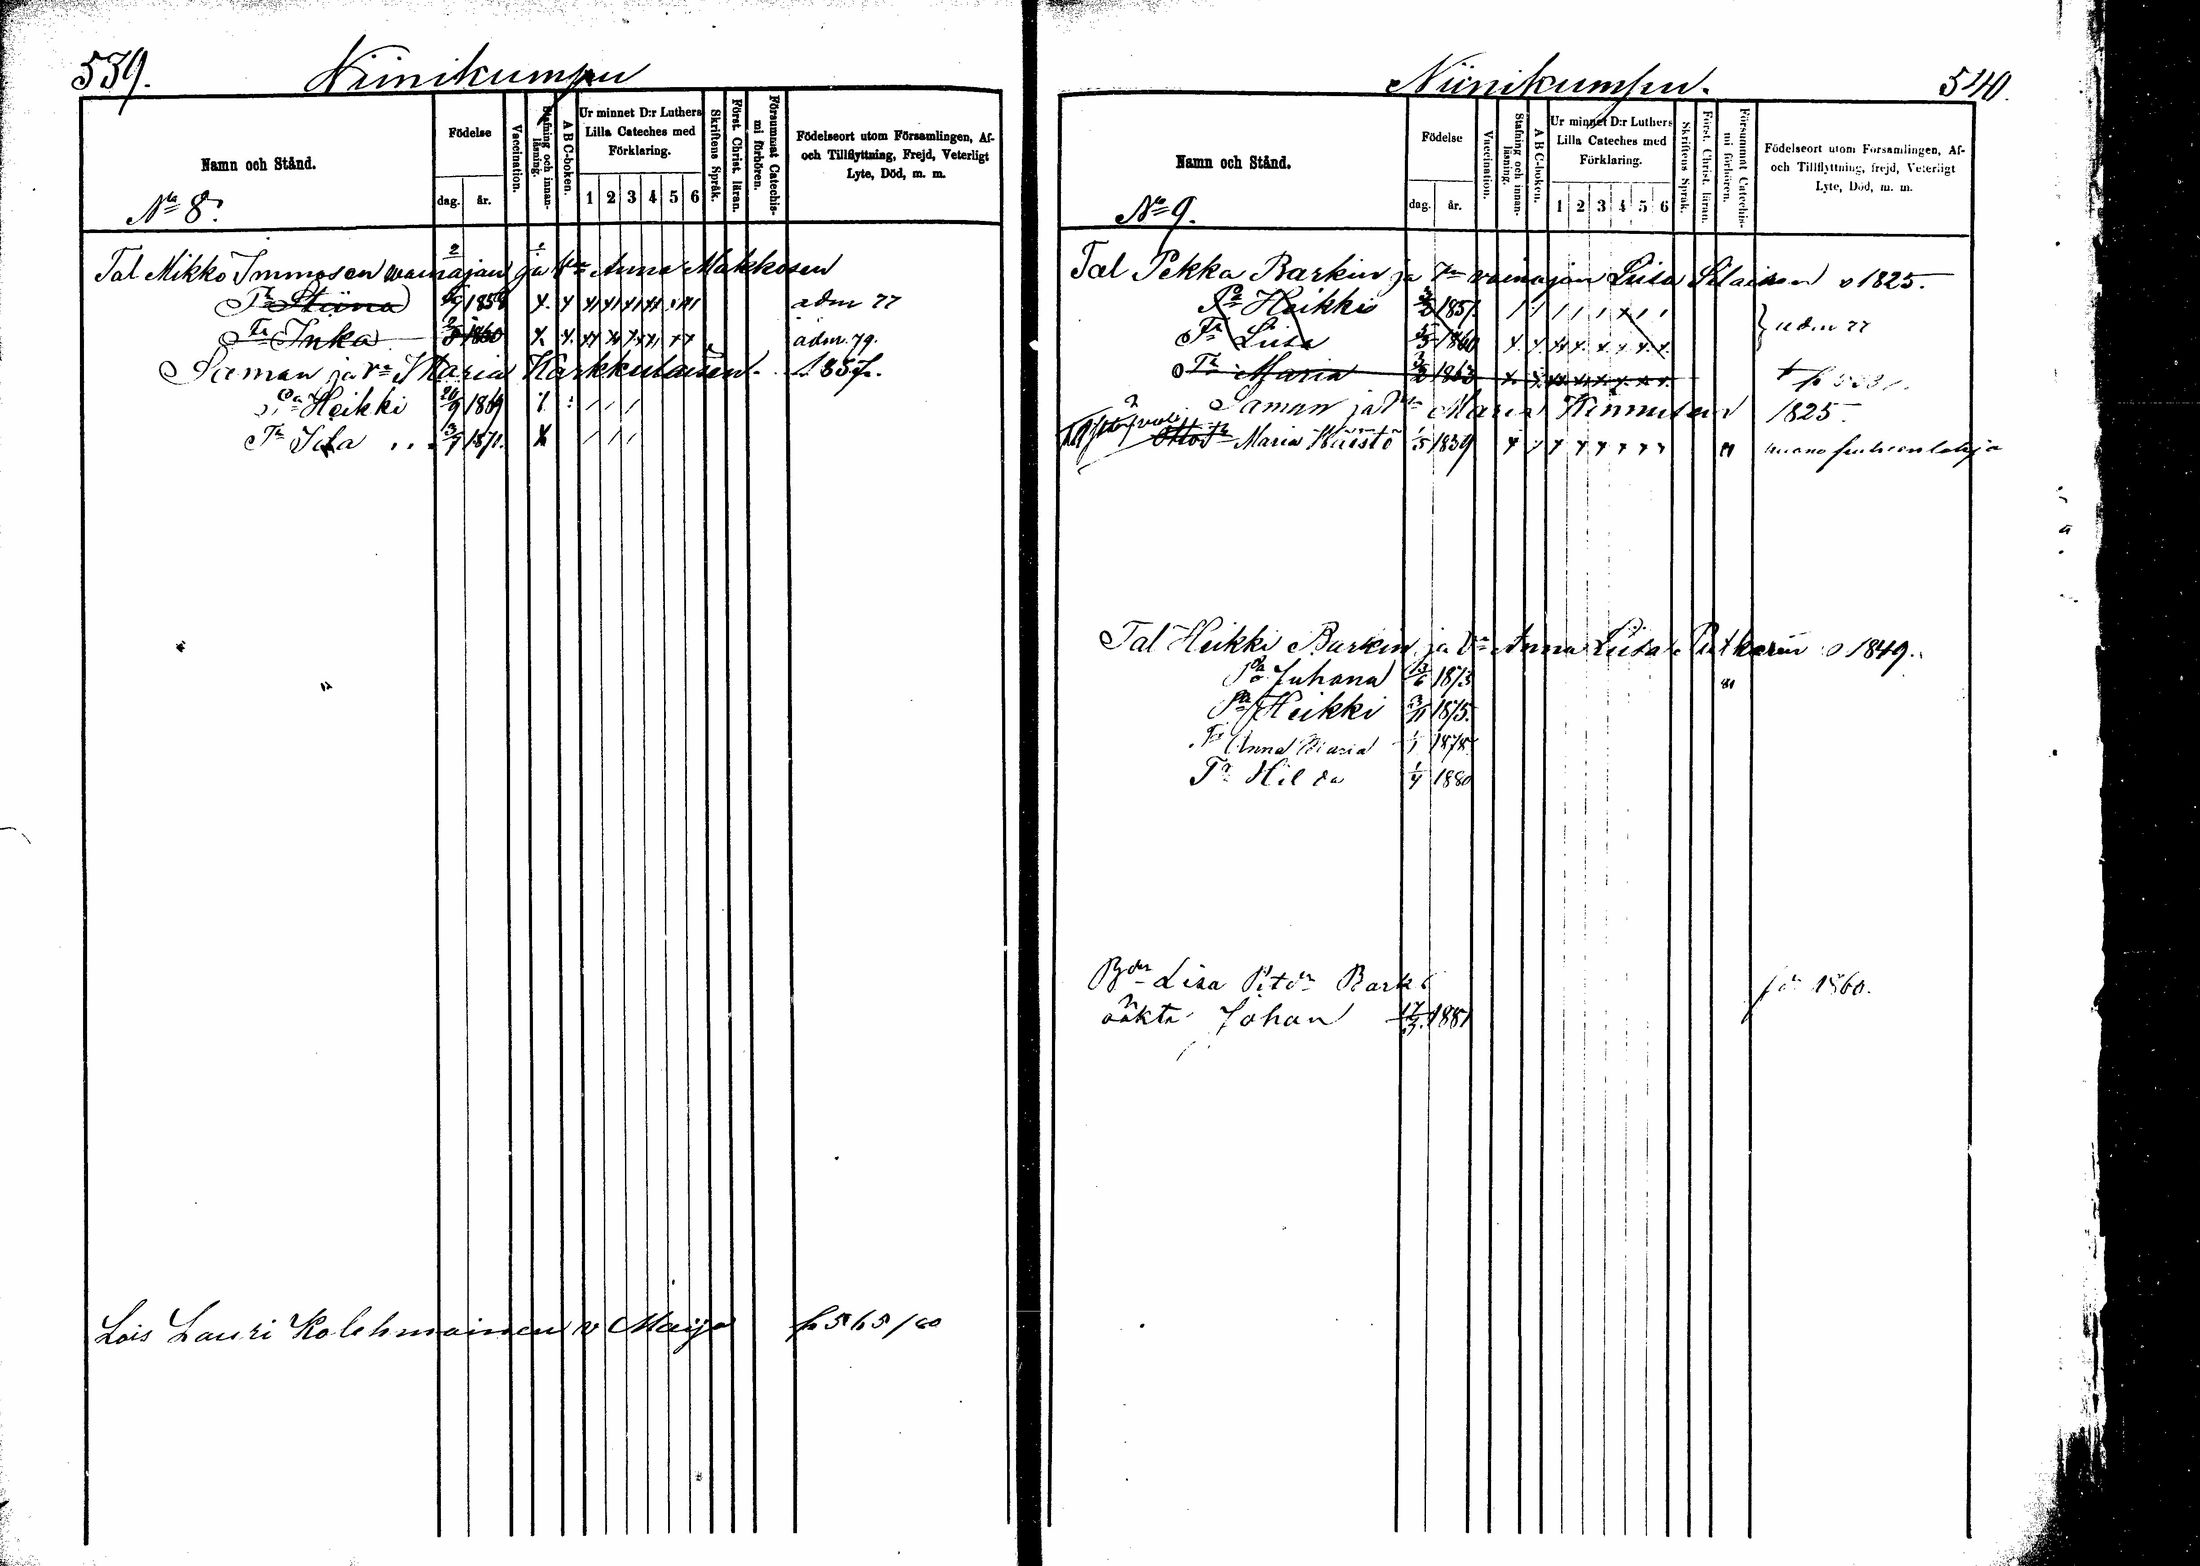 539. Niinikumpu
Namn och Stånd.
Födelse
dag. år.
Vaccination.
Stafning och innanläsning.
A B C-boken.
Ur minnet D:r Luthers Lilla Cateches med Förklaring.
1 2 3 4 5 6
Skriftens Språk.
Först. Christ. läran.
Försummat Catechismi förhören.
Födelseort utom Församlingen, Af- och Tillflyttning, Frejd, Veterligt Lyte, Död, m. m.
No 8.
Tal Mikko Immosen vainajan ja Vn Anna Makkosen
Tr Stiina 1858 adm 77
Tr Inka 1860 adm. 79.
Saman ja Vn Maria Karkkulaisen 1837.
Pa Heikki 20/9 1869
Tr Ida 1871.
Lois Lauri Kolehmainen v Maija p 565/80
Niinikumpu. 540.
Namn och Stånd.
Födelse
dag. år.
Vaccination.
Stafning och innanläsning.
A B C-boken.
Ur minnet D:r Luthers Lilla Cateches med Förklaring.
1 2 3 4 5 6
Skriftens Språk.
Först. Christ. läran.
Försummat Catechismi förhören.
Födelseort utom Församlingen, Af- och Tillflyttning, frejd, Veterligt Lyte, Död, m. m.
No 9.
Tal Pekka Barkin ja Vn vainajan Liisa Silaisen o 1825.
Pa Heikki 1857. adm 77
Tr Liisa 1860
Tr Maria 1863
Saman ja Vn Maria Kinnusen 1825.
Otto Tr Maria 1/5 1839
Tal Heikki Barkin ja Vn Anna Liisa o 1849.
Pa Juhana 13/6 1873 81
Pa Heikki 1875.
Tr Anna Maria 1/1 1878
Tr Hilda 1880
Bdr Lisa Petdr Bark 1860.
oäkta Johan 17/3 1881